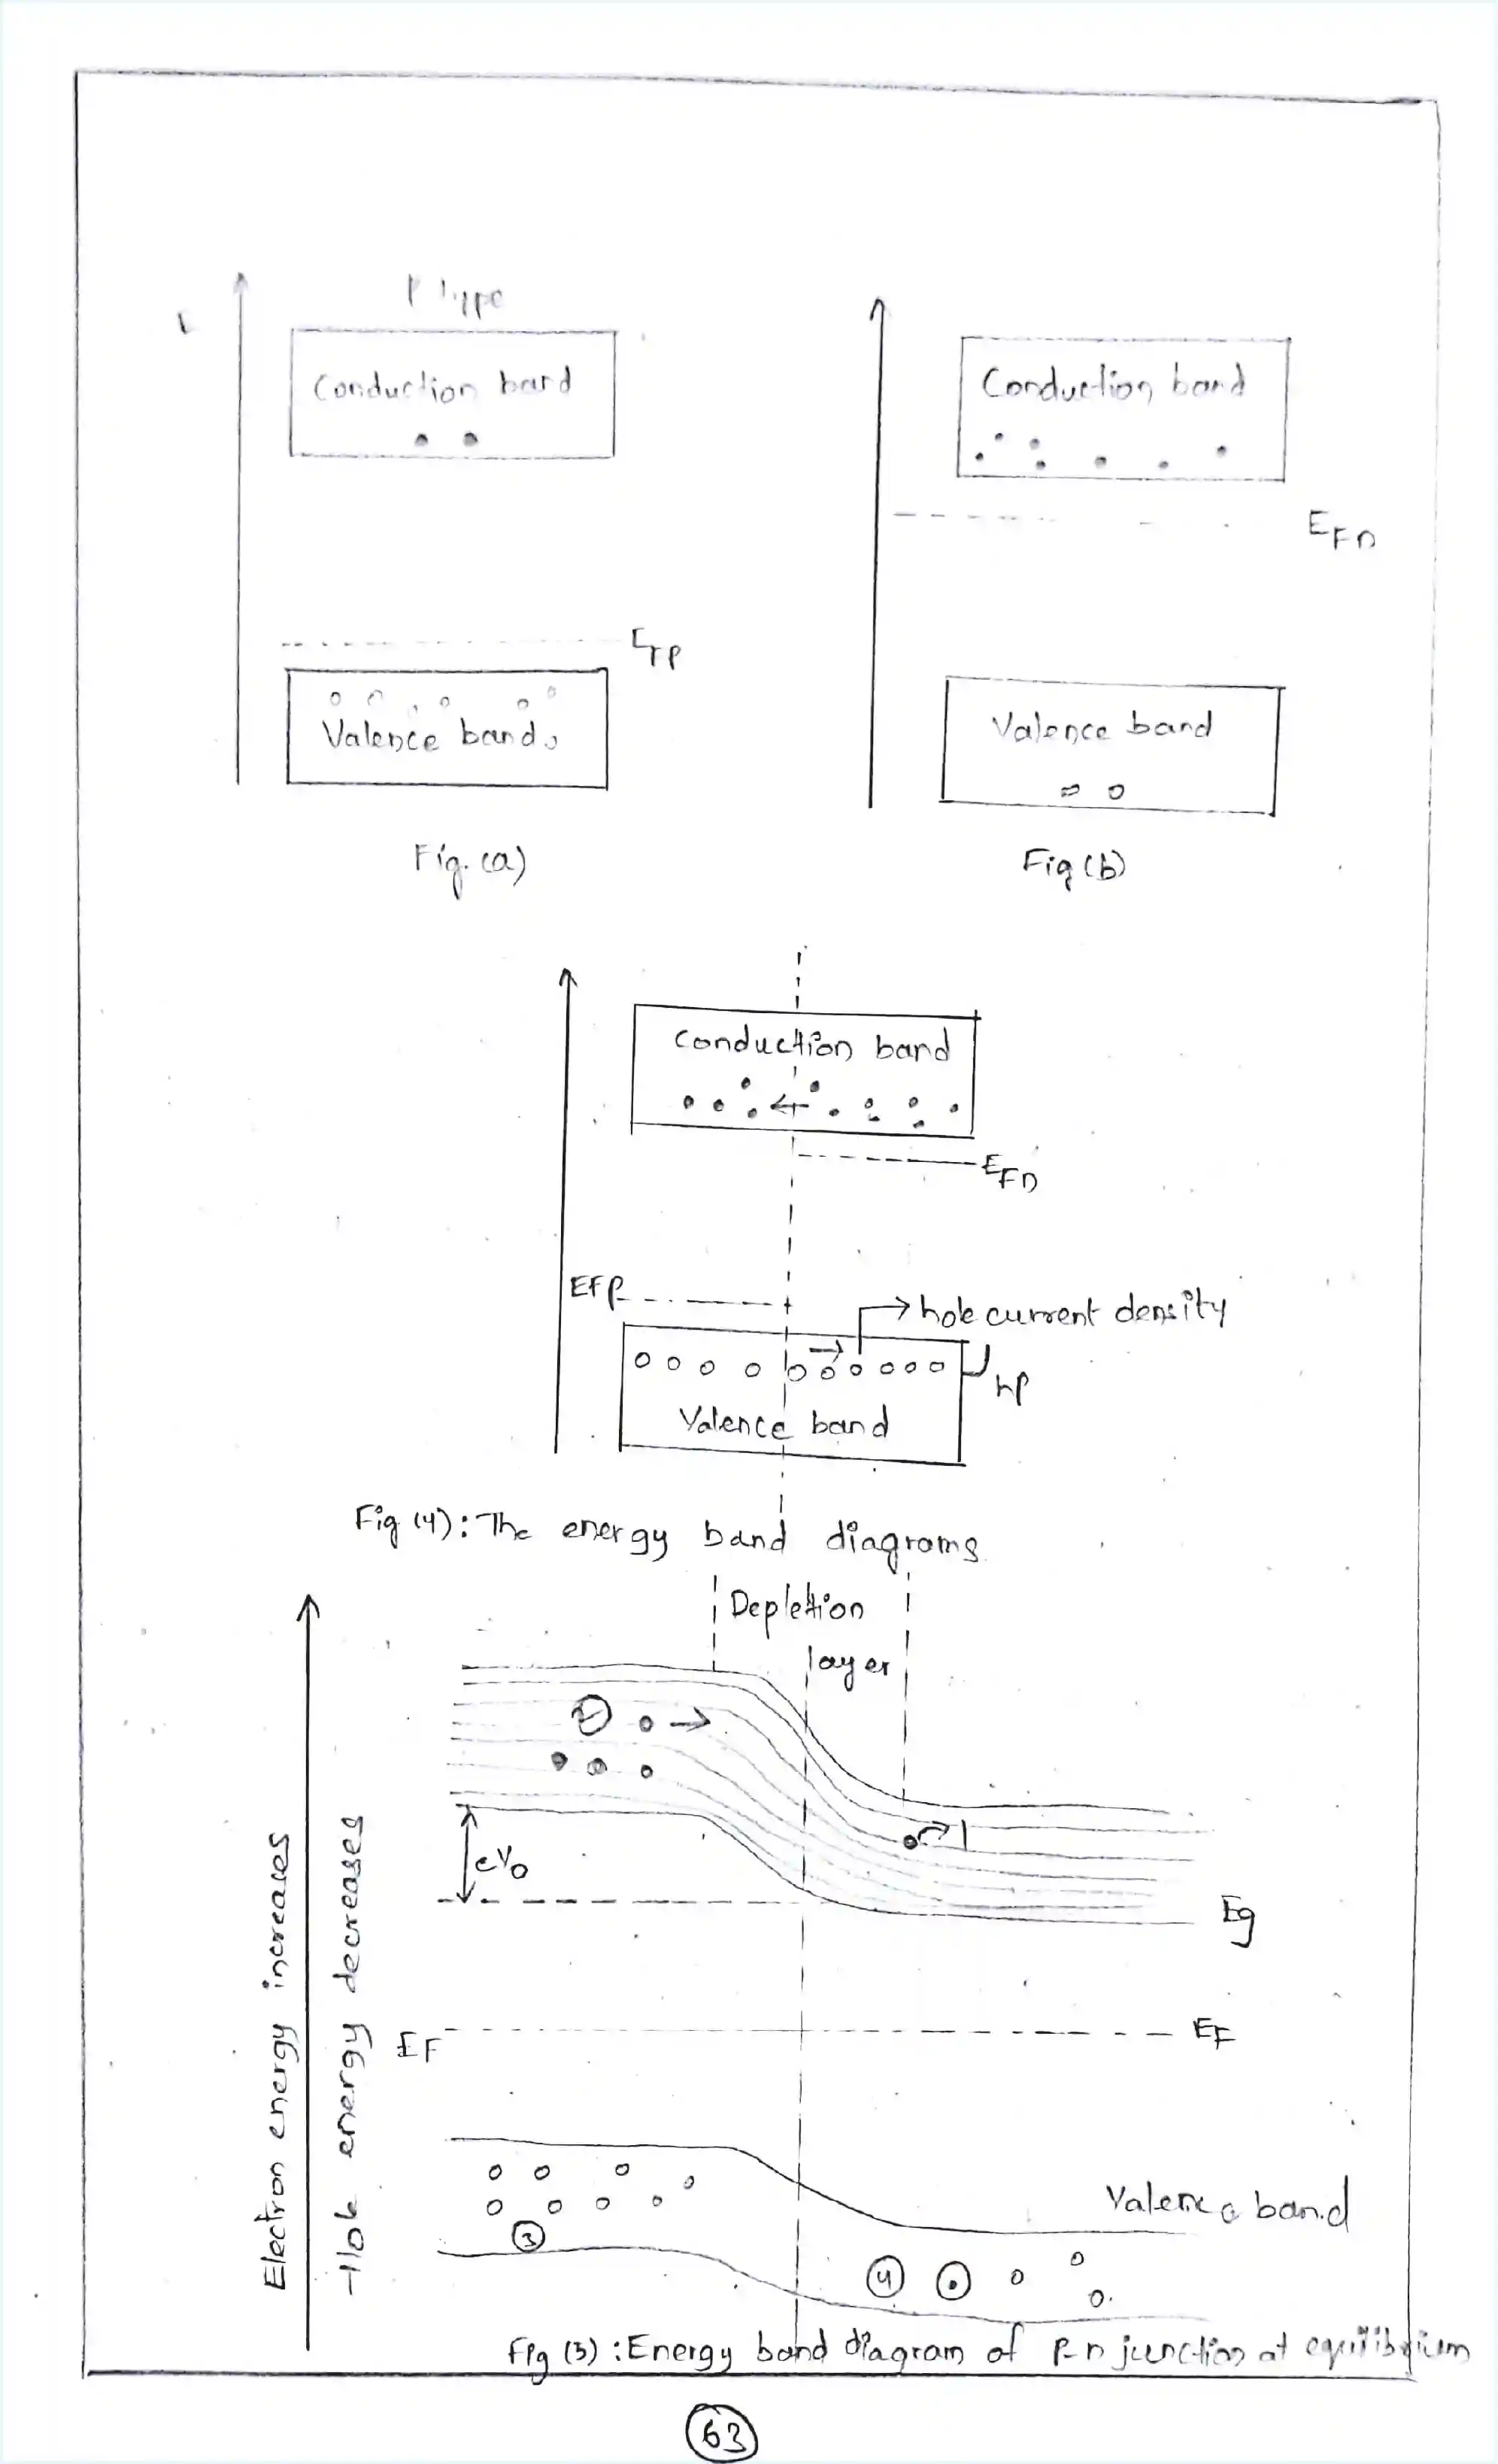 P type
E
Conduction band
Conduction band
EFn
EFp
Valence band
Valence band
Fig. (a)
Fig (b)
Conduction band
EFn
EFp
hole current density
Jhp
Valence band
Fig (4): The energy band diagrams
Depletion
layer
eVo
Eg
Electron energy increaces
Hole energy decreases
EF
EF
Valence band
3
4
Fig (3) : Energy band diagram of p-n junction at equilibrium
63